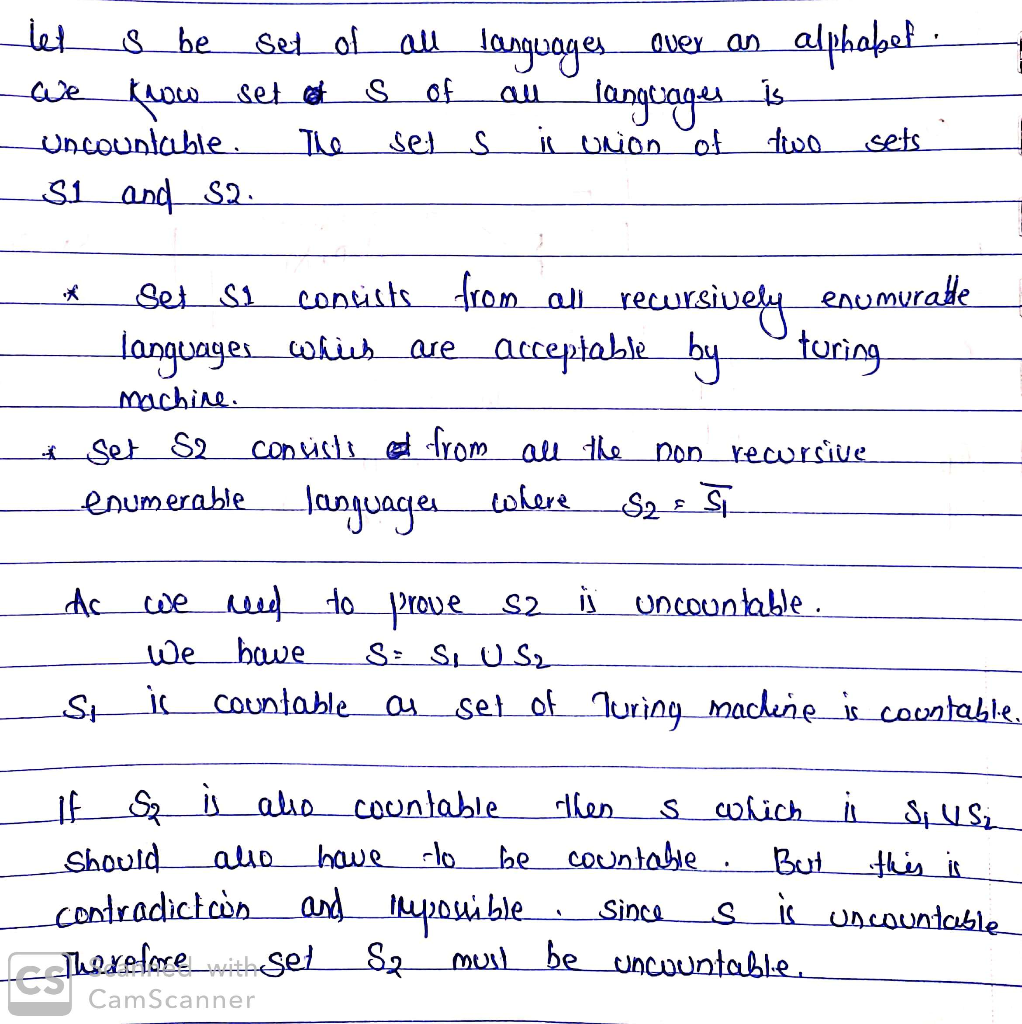 let S be set of all languages over an alphabet.
We know set of S of all languages is
uncountable. The set S is union of two sets
S1 and S2.
* Set S1 consists from all recursively enumurable
languages which are acceptable by turing
machine.
* Set S2 consists from all the non recursive
enumerable languages where S2 = S̅1
As we need to prove S2 is uncountable.
We have S = S1 U S2
S1 is countable as set of Turing machine is countable.
If S2 is also countable then S which is S1 U S2
should also have to be countable. But this is
contradiction and impossible. since S is uncountable
Therefore set S2 must be uncountable.
CS Scanned with
CamScanner